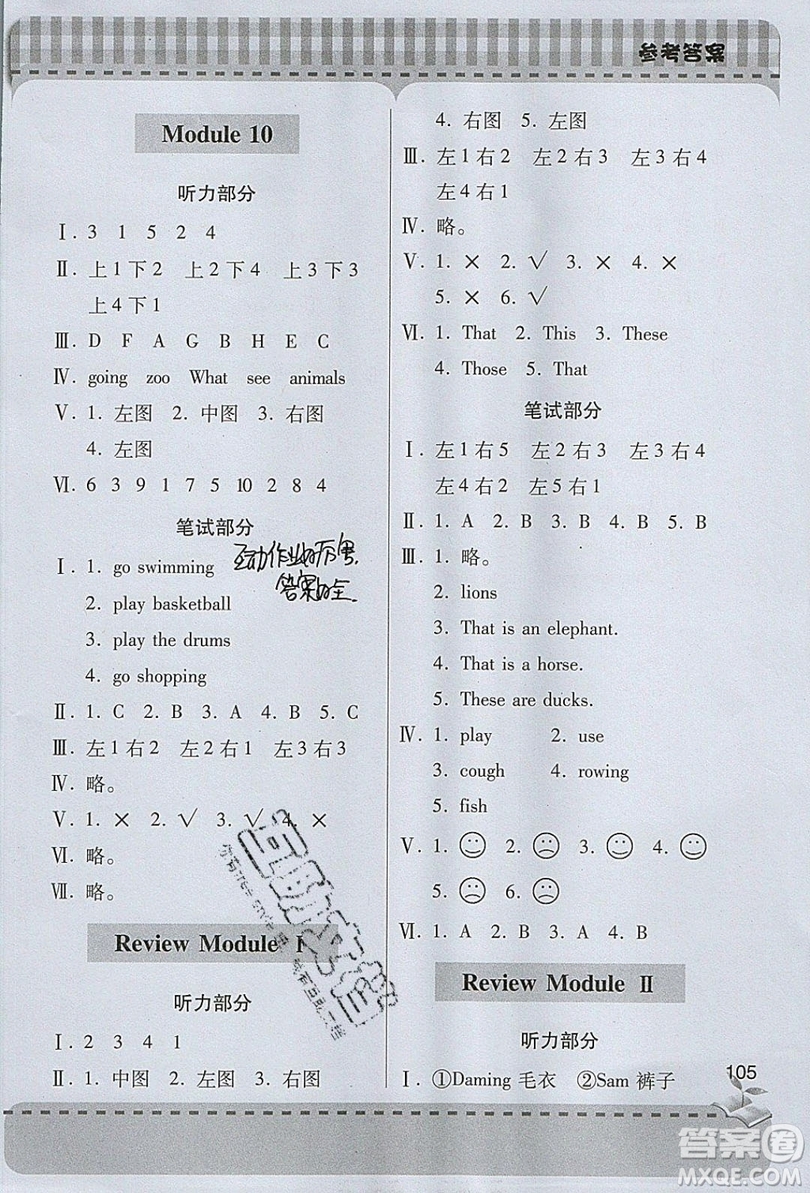 参考答案
Module 10
听力部分
Ⅰ. 3 1 5 2 4
Ⅱ. 上1下2 上2下4 上3下3
上4下1
Ⅲ. D F A G B H E C
Ⅳ. going zoo What see animals
Ⅴ. 1. 左图 2. 中图 3. 右图
4. 左图
Ⅵ. 6 3 9 1 7 5 10 2 8 4
笔试部分
Ⅰ. 1. go swimming
2. play basketball
3. play the drums
4. go shopping
互动作业的厉害,
答案的全
Ⅱ. 1. C 2. B 3. A 4. B 5. C
Ⅲ. 左1右2 左2右1 左3右3
Ⅳ. 略。
Ⅴ. 1. × 2. √ 3. √ 4. ×
Ⅵ. 略。
Ⅶ. 略。
Review Module Ⅰ
听力部分
Ⅰ. 2 3 4 1
Ⅱ. 1. 中图 2. 左图 3. 右图
4. 右图 5. 左图
Ⅲ. 左1右2 左2右3 左3右4
左4右1
Ⅳ. 略。
Ⅴ. 1. × 2. √ 3. × 4. ×
5. × 6. √
Ⅵ. 1. That 2. This 3. These
4. Those 5. That
笔试部分
Ⅰ. 左1右5 左2右3 左3右4
左4右2 左5右1
Ⅱ. 1. A 2. B 3. B 4. A 5. B
Ⅲ. 1. 略。
2. lions
3. That is an elephant.
4. That is a horse.
5. These are ducks.
Ⅳ. 1. play 2. use
3. cough 4. rowing
5. fish
Ⅴ. 1. 2. 3. 4.
5. 6.
Ⅵ. 1. A 2. B 3. A 4. B
Review Module Ⅱ
听力部分
Ⅰ. ①Daming 毛衣 ②Sam 裤子
105
答案圈
MXQE.COM